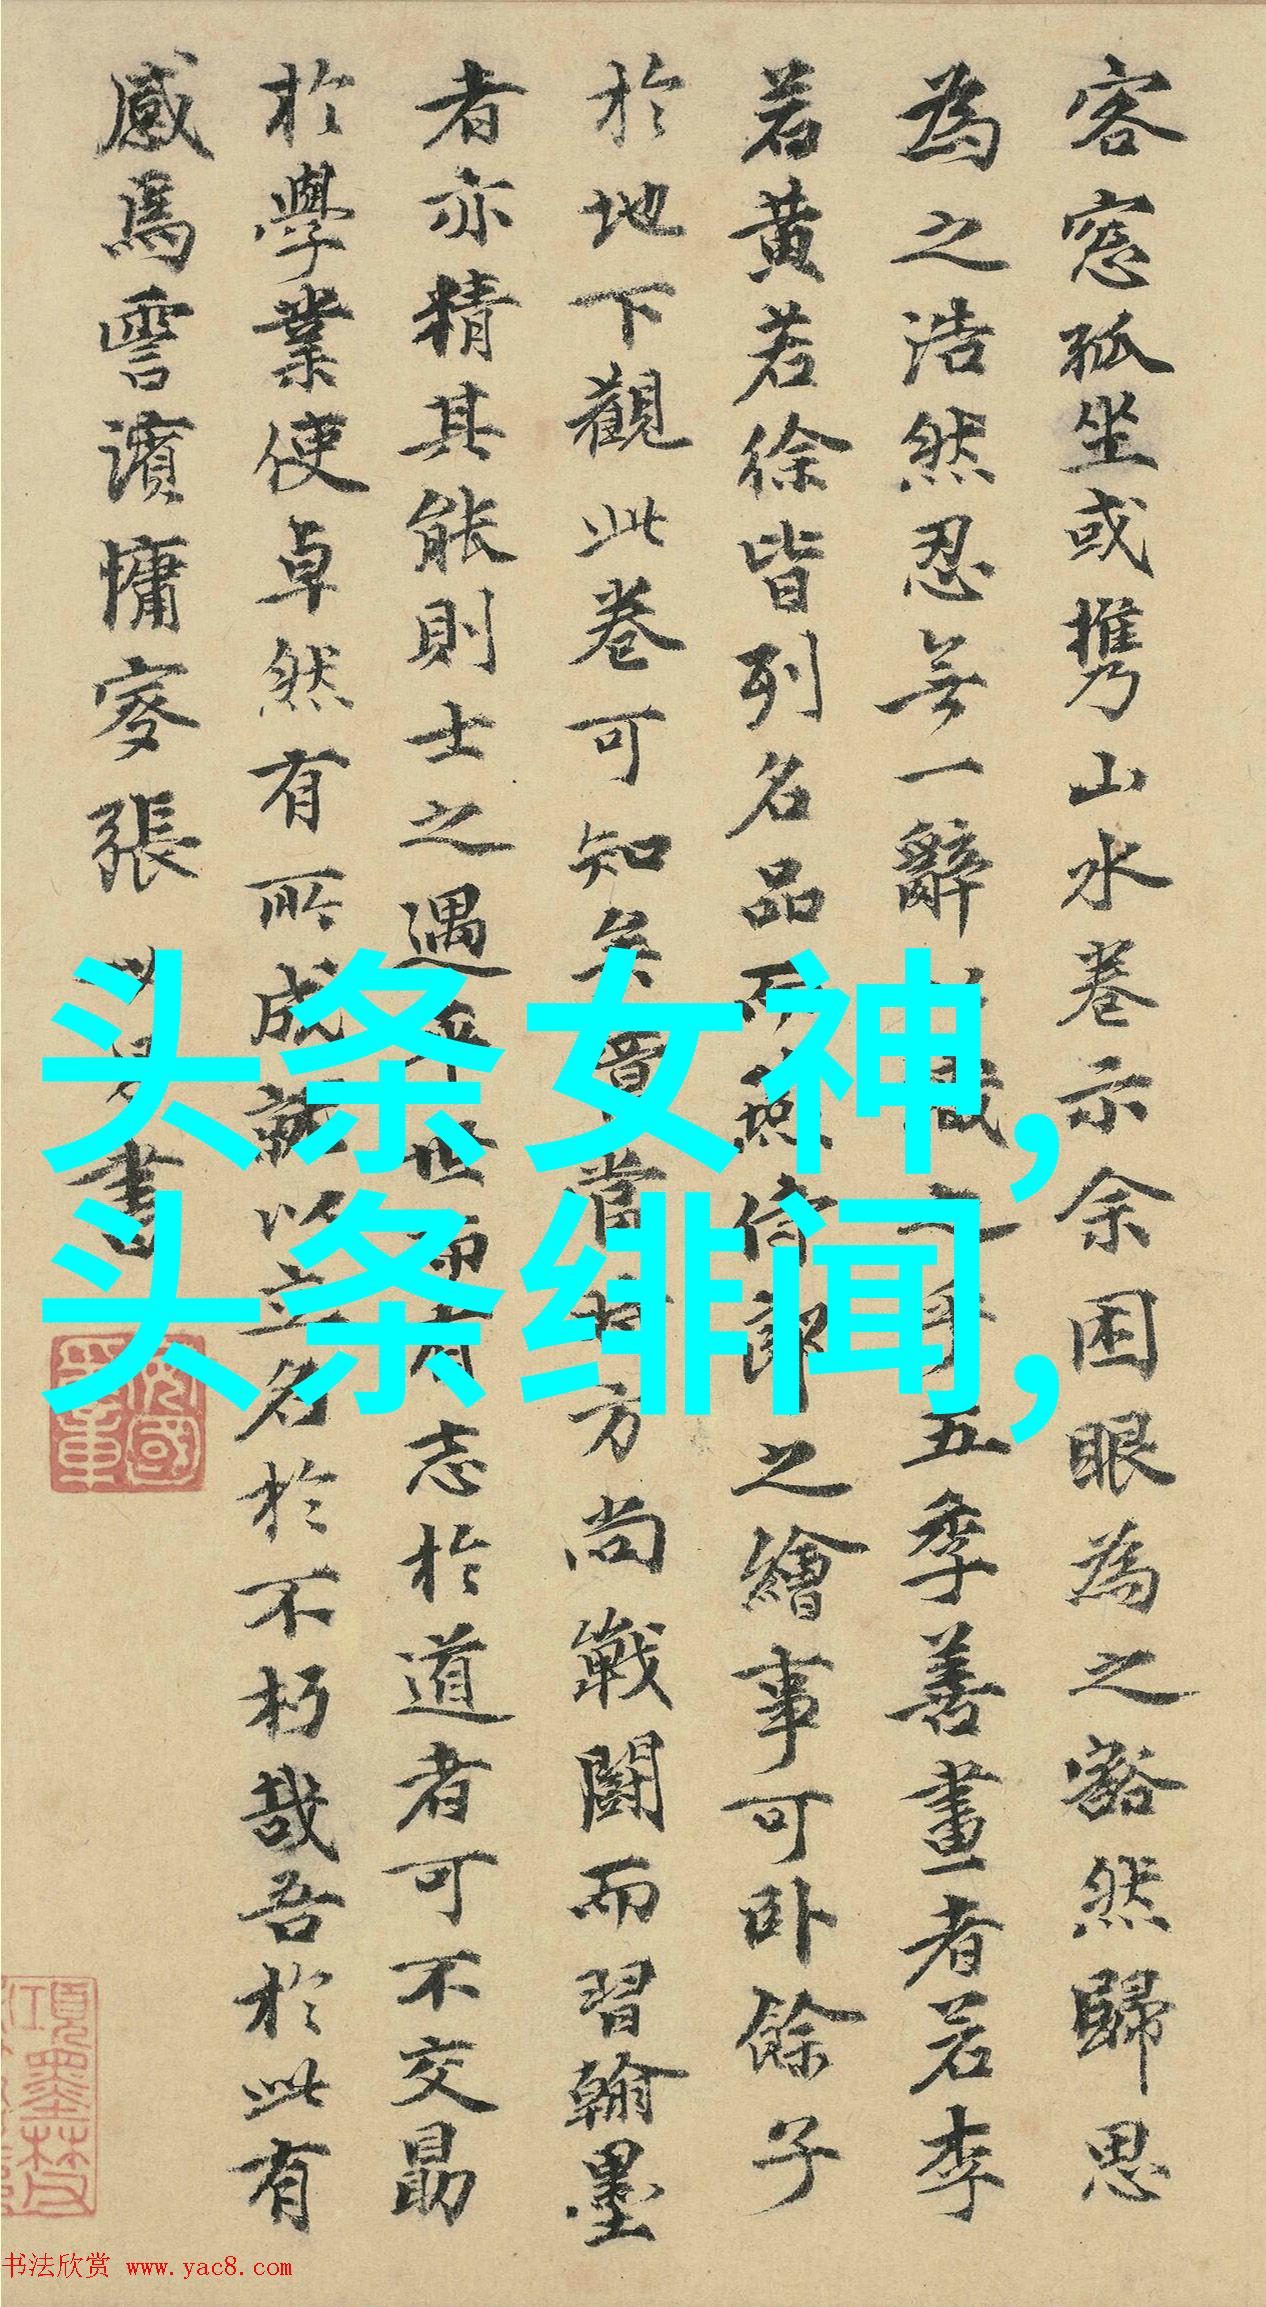 客窓孤坐或携山水卷示余困眼為之豁然歸思
為之浩然忍無一辭職之乎五季善畫者若李
若黄若徐皆列名品而燕侍郎之繪事可卧餘子
於地下觀此卷可知矣昔當方尚戰鬪而習翰墨
者亦精其能則士之遇世而有志於道者可不交勗
於學業使卓然有所成就以立名於不朽哉吾於此有
感焉雪濱慵叟張書
头条女神,
头条绯闻,
书法欣赏 www.yac8.com